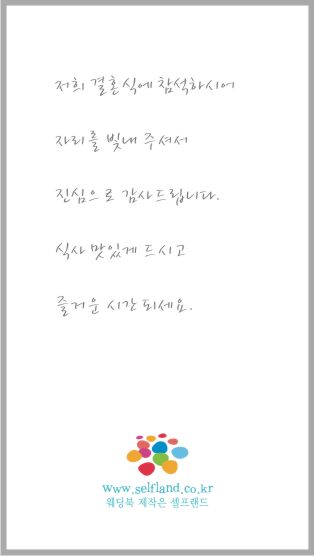 저희 결혼식에 참석하시어
자리를 빛내 주셔서
진심으로 감사드립니다.
식사 맛있게 드시고
즐거운 시간 되세요.
www.selfland.co.kr
웨딩북 제작은 셀프랜드